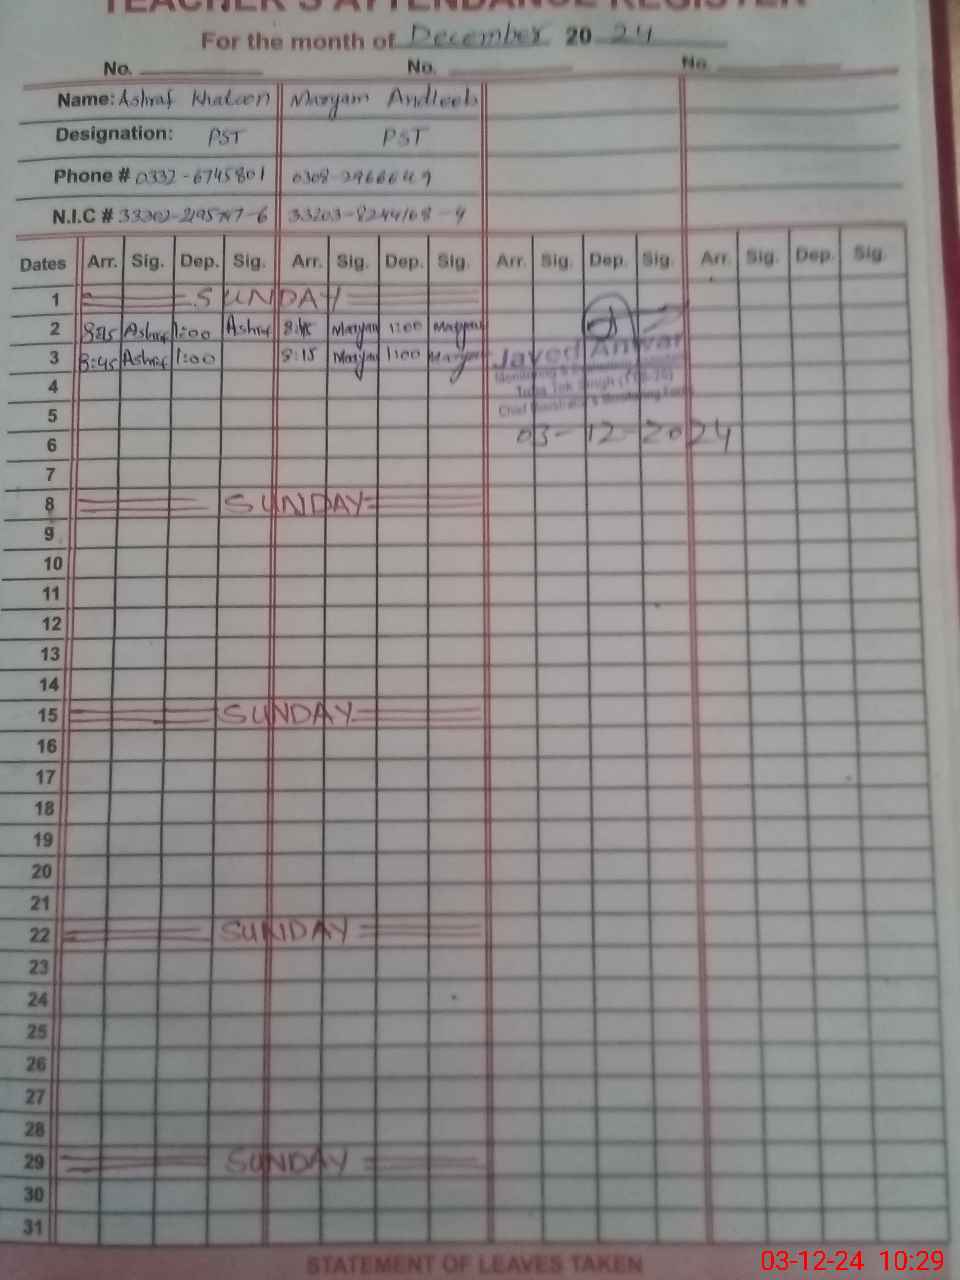 TEACHER'S ATTENDANCE REGISTER
For the month of December 20 24
No. No. No.
Name: Ashraf Khatoon Maryam Andleeb
Designation: PST PST
Phone # 0332-6745801
N.I.C #
Dates Arr. Sig. Dep. Sig. Arr. Sig. Dep. Sig. Arr. Sig. Dep. Sig. Arr. Sig. Dep. Sig.
1 SUNDAY
2 Ashraf 1:00 Ashraf Maryam 1:00 Maryam
3 8:45 Ashraf 1:00 8:15 Maryam 1:00 Maryam
Javed Anwar
4
5
6 03-12-2024
7
8 SUNDAY
9
10
11
12
13
14
15 SUNDAY
16
17
18
19
20
21
22 SUNDAY
23
24
25
26
27
28
29 SUNDAY
30
31
STATEMENT OF LEAVES TAKEN
03-12-24 10:29